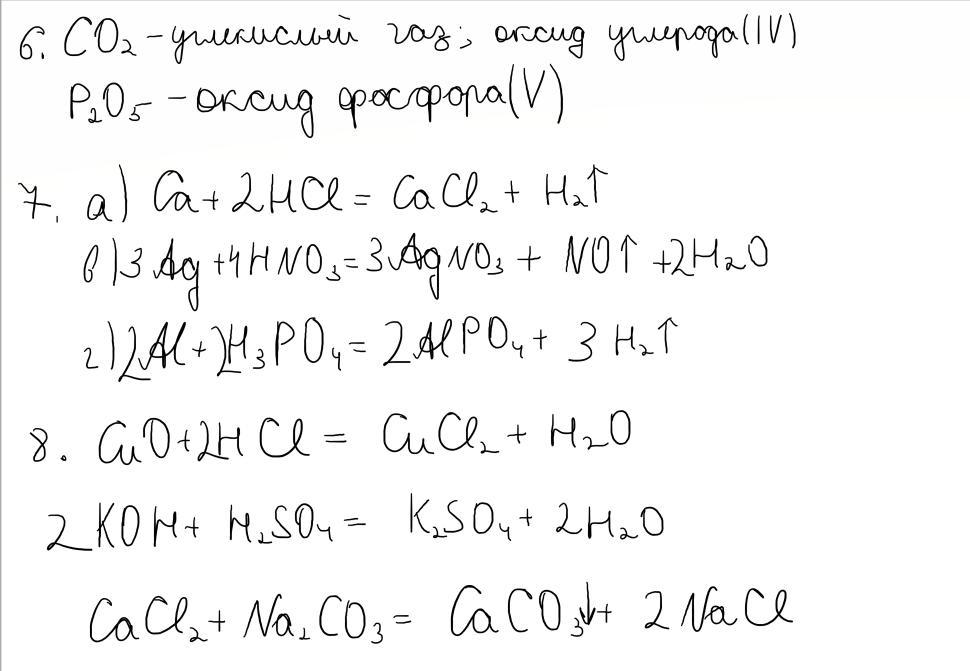 6. CO₂ - углекислый газ; оксид углерода(IV)
P₂O₅ - оксид фосфора(V)
7. а) Ca + 2HCl = CaCl₂ + H₂↑
в) 3Ag + 4HNO₃ = 3AgNO₃ + NO↑ + 2H₂O
г) 2Al + 2H₃PO₄ = 2AlPO₄ + 3H₂↑
8. CuO + 2HCl = CuCl₂ + H₂O
2KOH + H₂SO₄ = K₂SO₄ + 2H₂O
CaCl₂ + Na₂CO₃ = CaCO₃↓ + 2NaCl